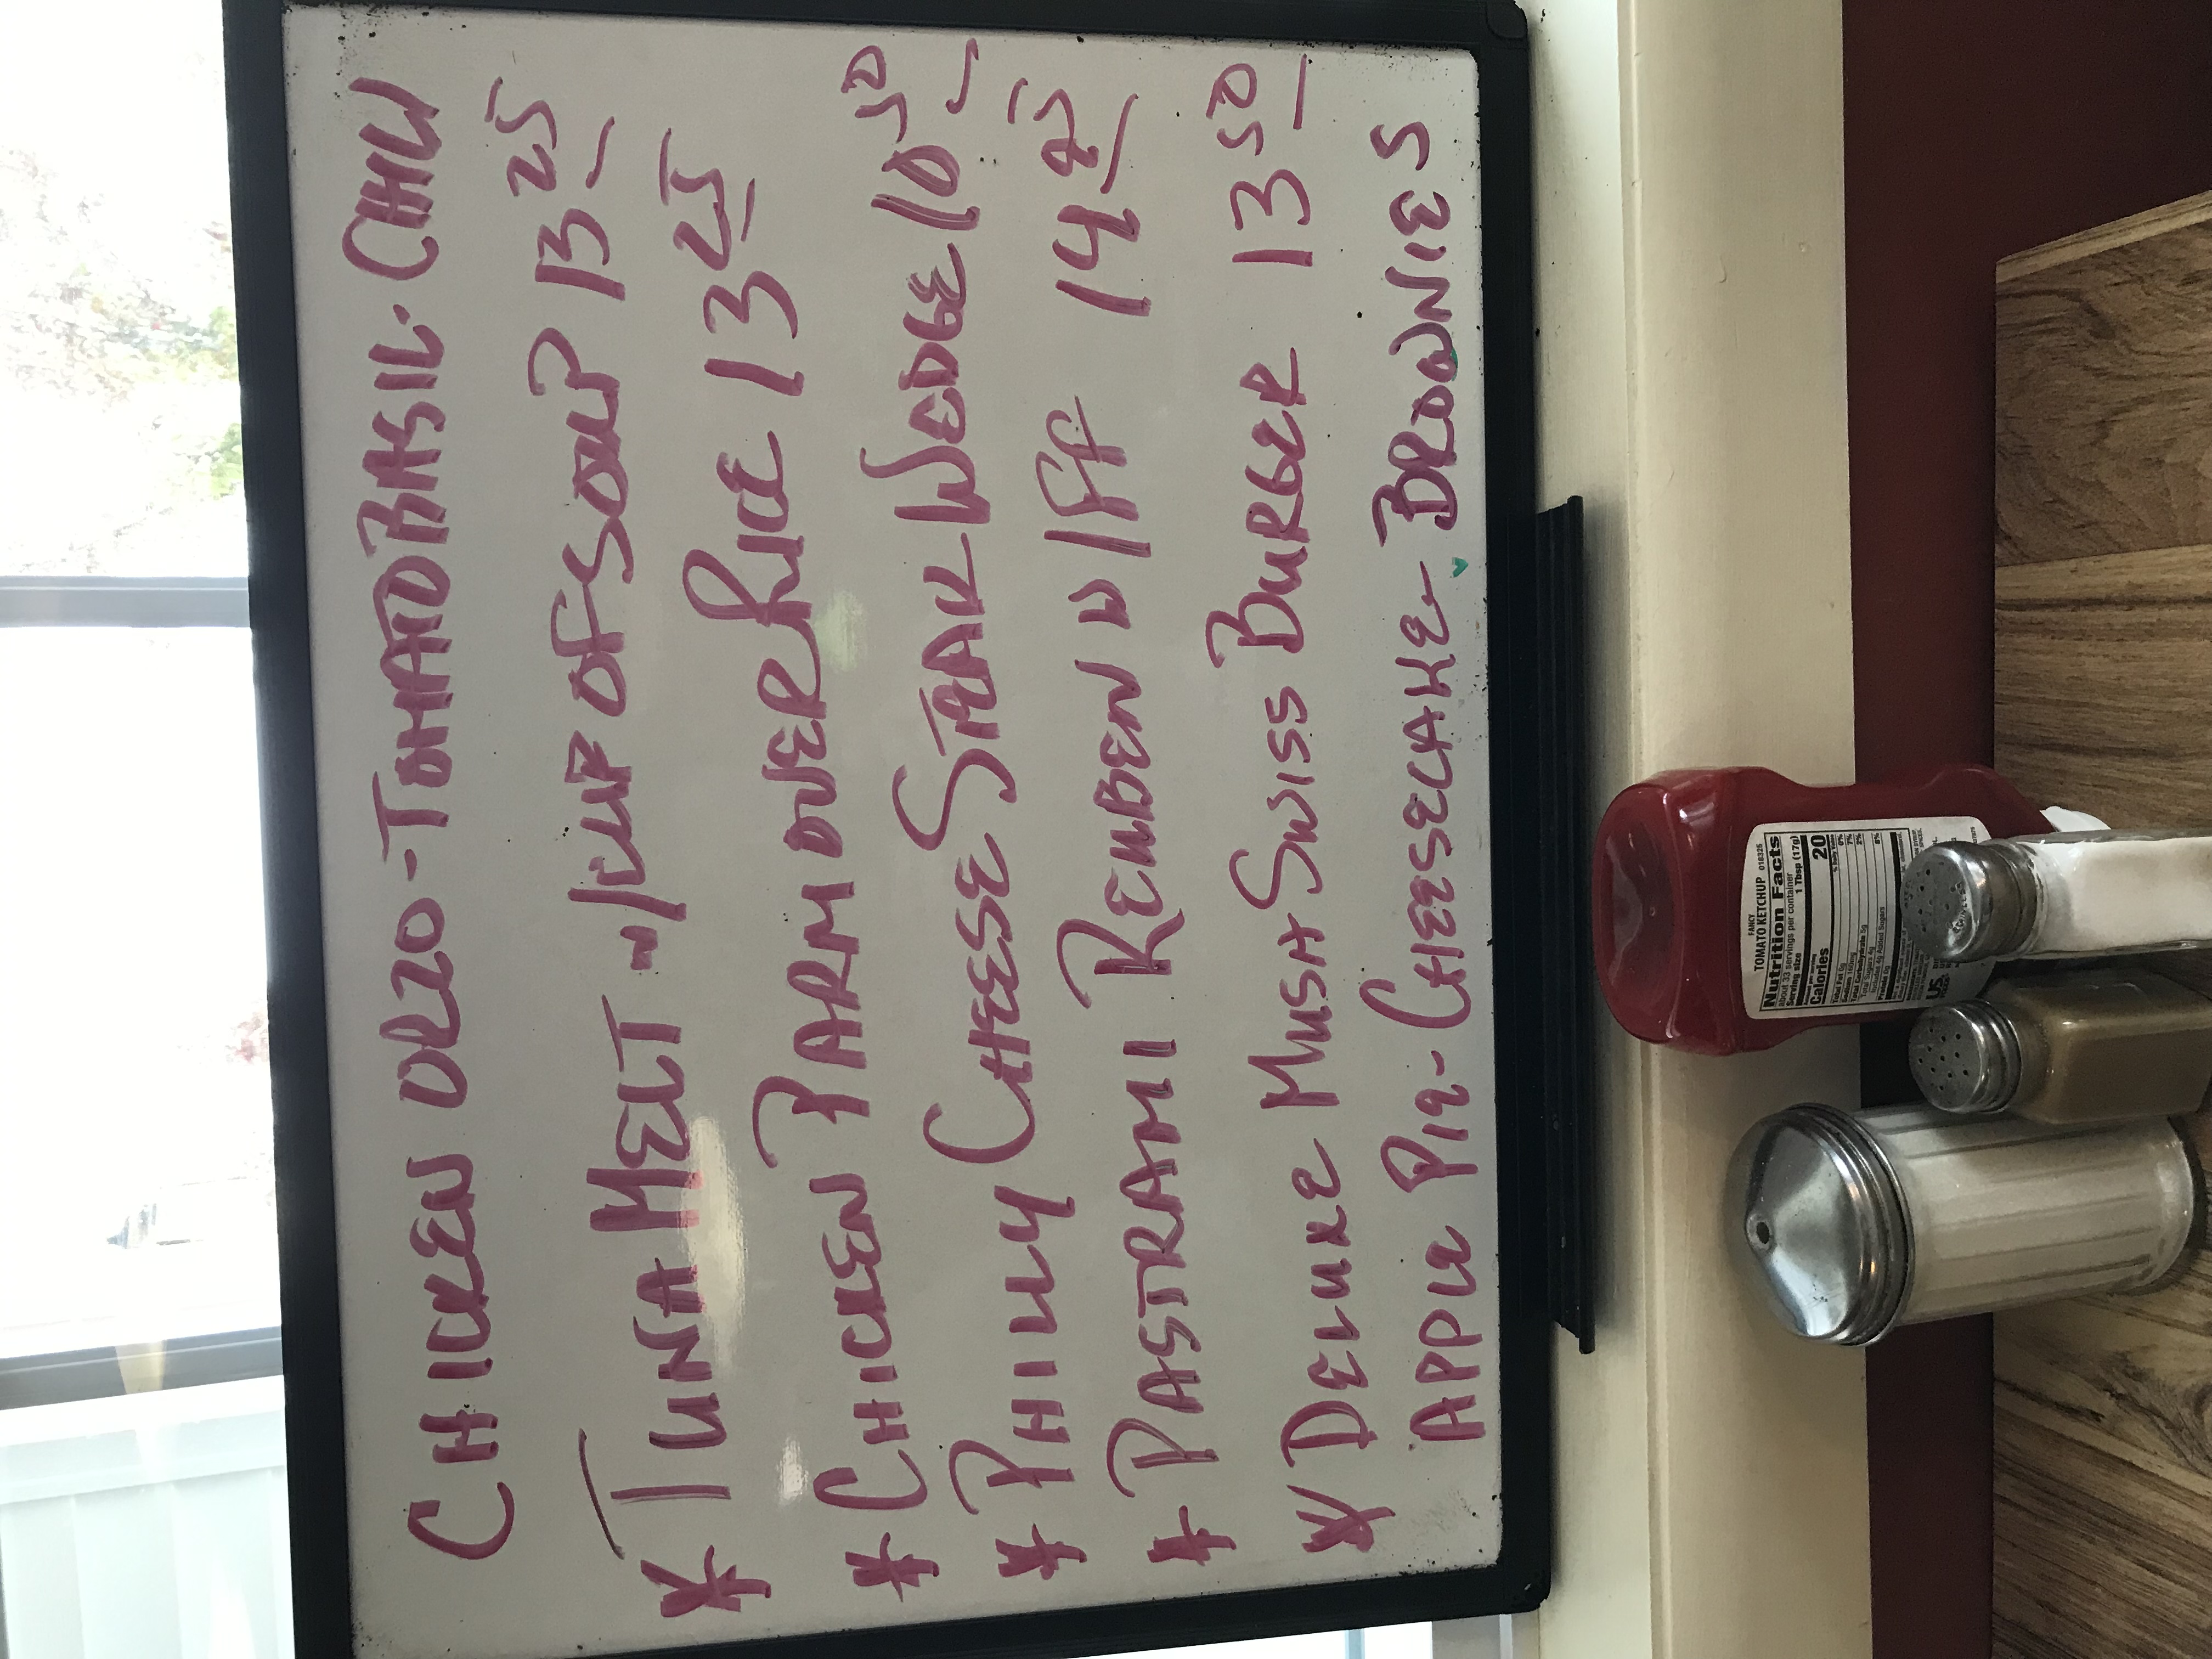 CHICKEN ORZO - TOMATO BASIL - CHILI
* TUNA MELT w/CUP OF SOUP 13 25
* CHICKEN PARM OVER RICE 13 25
* PHILLY CHEESE STEAK WEDGE 10 50
* PASTRAMI REUBEN W/FF 14 25
* DELUXE MUSH SWISS BURGER 13 50
APPLE PIE - CHEESECAKE - BROWNIES
FANCY
TOMATO KETCHUP 018325
Nutrition Facts
about 33 servings per container
Serving size 1 Tbsp (17g)
Calories 20
Total Fat 0g 0%
Total Sugars 4g
US